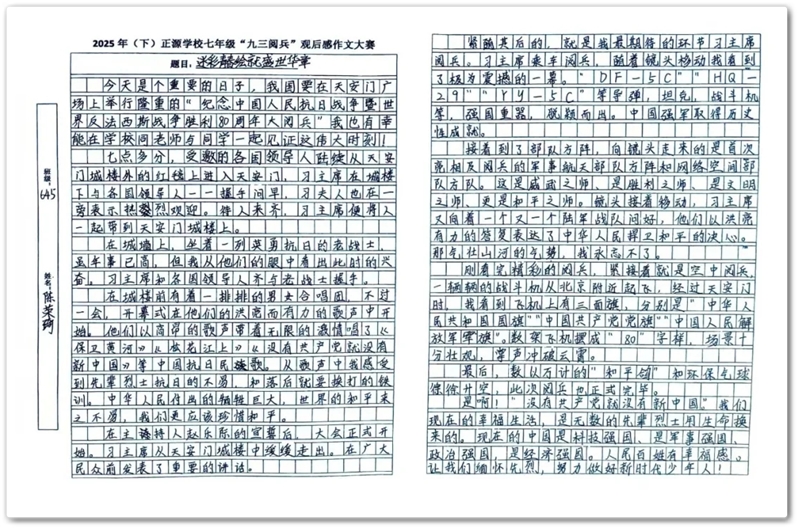 2025年（下）正源学校七年级“九三阅兵”观后感作文大赛
题目：迷彩绘就盛世华章
班级：
645
姓名：陈荣琦
今天是个重要的日子，我国要在天安门广
场上举行隆重的“纪念中国人民抗日战争暨世
界反法西斯战争胜利80周年大阅兵”我也有幸
能在学校同老师与同学一起见证这伟大时刻！
七点多分，受邀的各国领导人陆续从天安
门城楼外的红毯上进入天安门，习主席在城楼
下与各国领导人一一握手问早，习夫人也在一
旁表示热烈欢迎。待人来齐，习主席便将人
一起带到天安门城楼上。
在城墙上，坐着一列英勇抗日的老战士，
虽年事已高，但我从他们的眼中看出此时的兴
奋。习主席和各国领导人齐与老战士握手。
在城楼前有着一排排的男女合唱团，不过
一会，开幕式在他们的洪亮而有力的歌声中开
始。他们以高昂的歌声带着无限的激情唱了《
保卫黄河》《松花江上》《没有共产党就没有
新中国》等中国抗日民族歌。从歌声中我感受
到先辈烈士抗日的不易，和落后就要挨打的铁
训。中华人民付出的牺牲巨大，世界的和平来
之不易，我们更应该珍惜和平。
在主持人赵乐际的宣誓后，大会正式开
始。习主席从天安门城楼中缓缓走出。在广大
民众前发表了重要的讲话。
紧随其后的，就是我最期待的环节习主席
阅兵。习主席乘车阅兵，随着镜头移动我看到
了极为震撼的一幕。“DF-5C”“HQ-
29”“YY-5C”等导弹，坦克，战斗机
等，强国重器，脱颖而出。中国强军取得历史
性成就。
接着看到了部队方阵，向镜头走来的是首次
亮相反阅兵的军事航天部队方阵和网络空间部
队方队。这是威武之师、是胜利之师、是文明
之师、更是和平之师。镜头接着移动，习主席
又向着一个又一个陆军战队问好，他们以洪亮
有力的答复表达了中华人民捍卫和平的决心。
那气壮山河的气势，我永忘不了。
刚看完精彩的阅兵，紧接着就是空中阅兵，
一辆辆的战斗机从北京附近起飞，经过天安门
时，我看到飞机上有三面旗，分别是“中华人
民共和国国旗”“中国共产党党旗”“中国人民解
放军军旗”。数架飞机摆成“80”字样，场景十
分壮观，掌声冲破云霄。
最后，数以万计的“和平鸽”和环保气球
徐徐升空，此次阅兵也正式完毕。
是啊！“没有共产党就没有新中国。”我们
现在的幸福生活，是无数的先辈烈士用生命换
来的。现在的中国是科技强国、是军事强国、
政治强国，是经济强国。人民百姓有幸福感。
让我们缅怀先烈，努力做好新时代少年人！